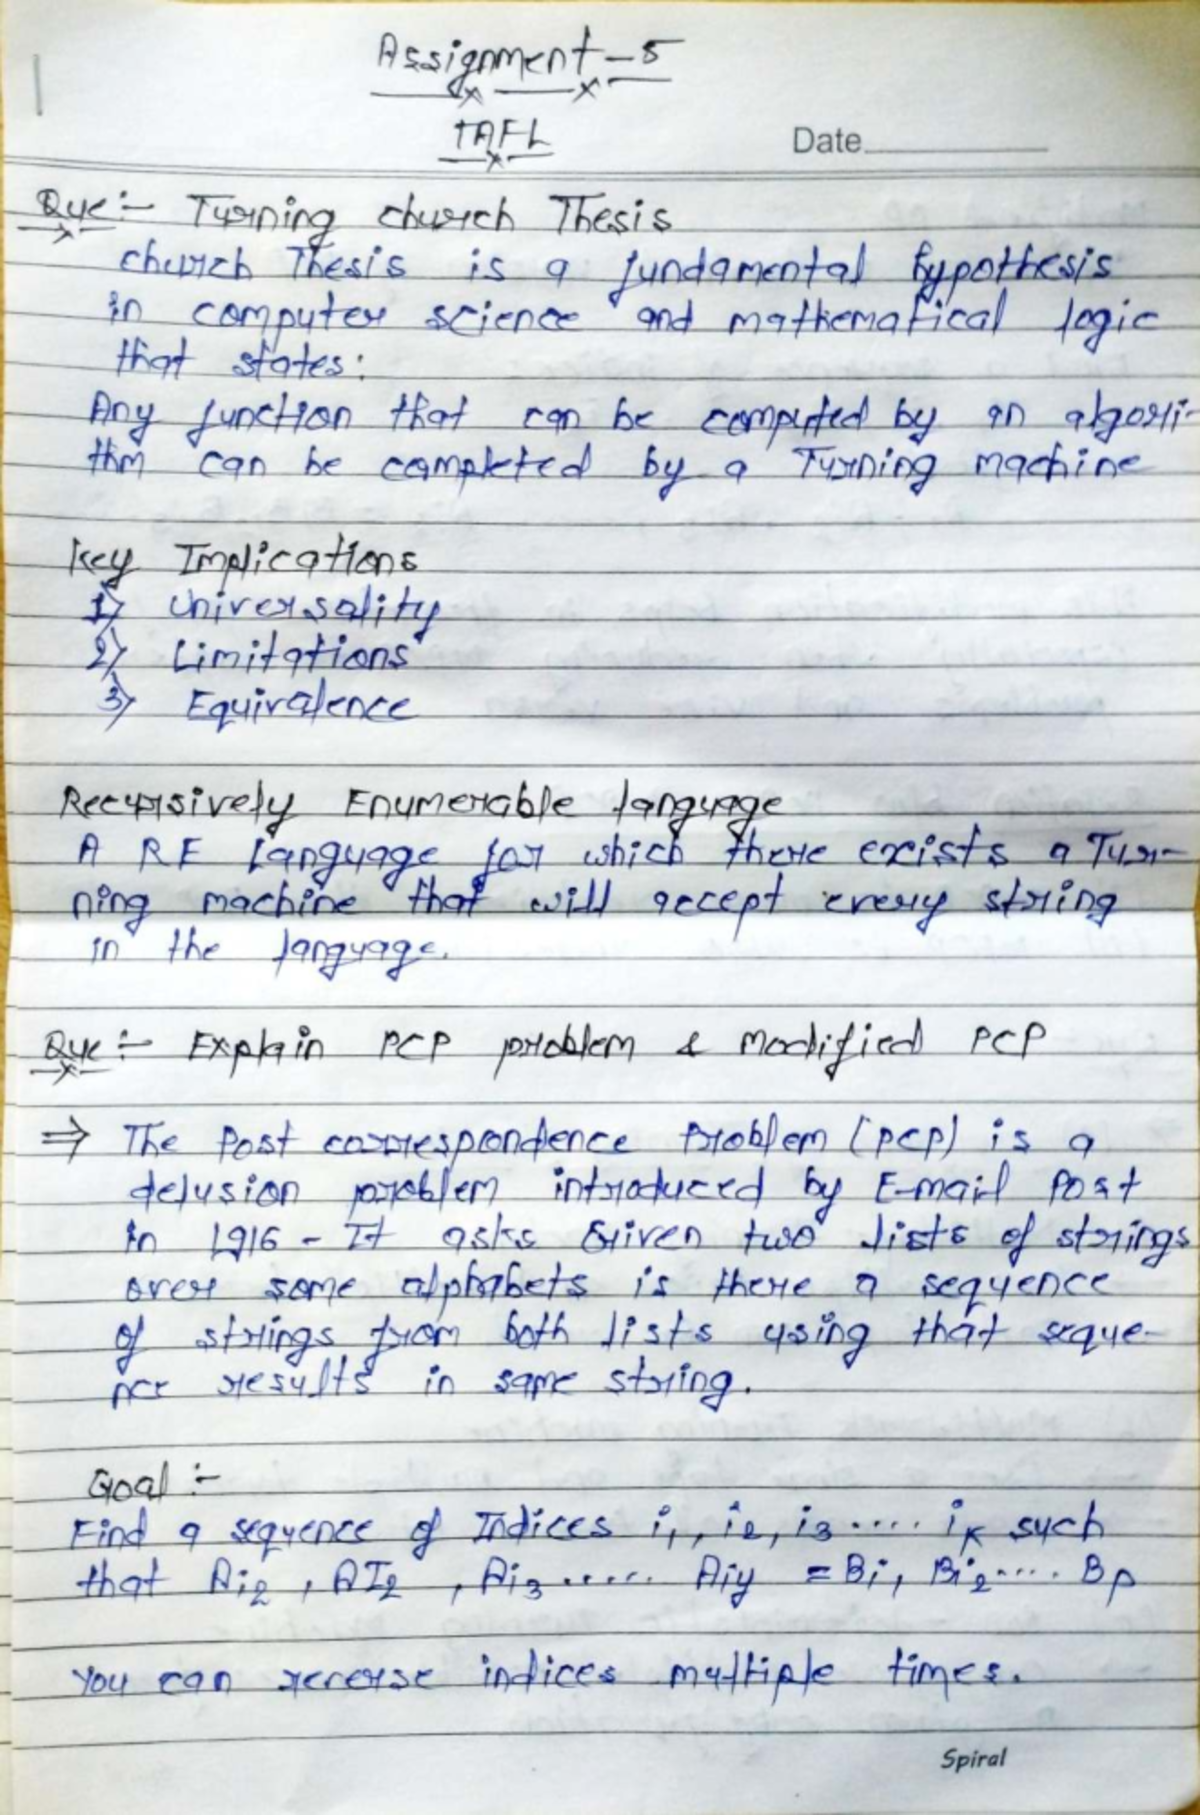 Assignment-5
TAFL
Date
Que:- Turning church Thesis
church Thesis is a fundamental hypothesis
in computer science and mathematical logic
that states:
Any function that can be computed by an algori-
thm can be completed by a Turning machine
Key Implications
1) Universality
2) Limitations
3) Equivalence
Recursively Enumerable language
A RE language for which there exists a Tur-
ning machine that will accept every string
in the language.
Que:- Explain PCP problem & Modified PCP
⇒ The Post correspondence Problem (PCP) is a
delusion problem introduced by E-mail Post
in 1916 - It asks Given two lists of strings
over some alphabets is there a sequence
of strings from both lists using that seque-
nce results in same string.
Goal :-
Find a sequence of Indices i1, i2, i3 .... ik such
that Ai2, AI2, Ai3 ...... Aiy = Bi, Bi2.... Bp
You can rererse indices multiple times.
Spiral